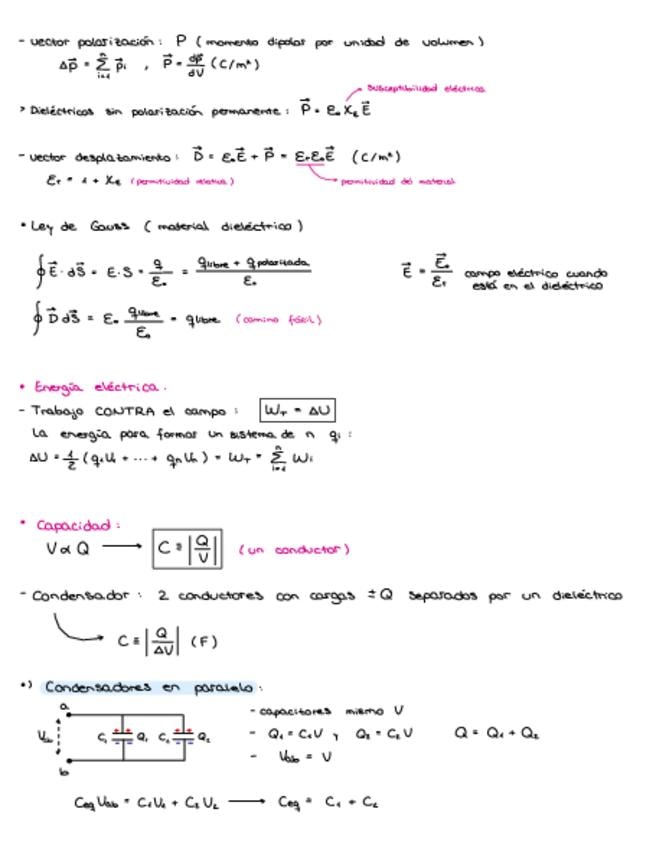 - vector polarización: P (momento dipolar por unidad de volumen)
Δp⃗ = Σⁿᵢ₌₁ p⃗ᵢ , P⃗ = dp⃗/dV (C/m²)
susceptibilidad eléctrica
> Dieléctricos sin polarización permanente: P⃗ = ε₀ χₑ E⃗
- vector desplazamiento: D⃗ = ε₀E⃗ + P⃗ = εᵣε₀E⃗ (C/m²)
εᵣ = 1 + χₑ (permitividad relativa) permitividad del material
• Ley de Gauss (material dieléctrico)
∮ E⃗ · dS⃗ = E·S = q/ε₀ = (q libre + q polarizada)/ε₀ E⃗ = E⃗₀/εᵣ campo eléctrico cuando
está en el dieléctrico
∮ D⃗ dS⃗ = ε₀ q libre/ε₀ = q libre (camino fácil)
• Energía eléctrica.
- Trabajo CONTRA el campo: W_T = ΔU
La energía para formar un sistema de n qᵢ:
ΔU = 1/2 (q₁U₁ + ... + qₙUₙ) = W_T = Σⁿᵢ₌₁ Wᵢ
• Capacidad:
V ∝ Q ⟶ C ≡ |Q/V| (un conductor)
- Condensador: 2 conductores con cargas ±Q separados por un dieléctrico
C ≡ |Q/ΔV| (F)
•) Condensadores en paralelo:
a
- capacitores mismo V
V_ab C₁ Q₁ C₂ Q₂ - Q₁ = C₁V y Q₂ = C₂V Q = Q₁ + Q₂
- V_ab = V
b
C_eq V_ab = C₁V₁ + C₂V₂ ⟶ C_eq = C₁ + C₂